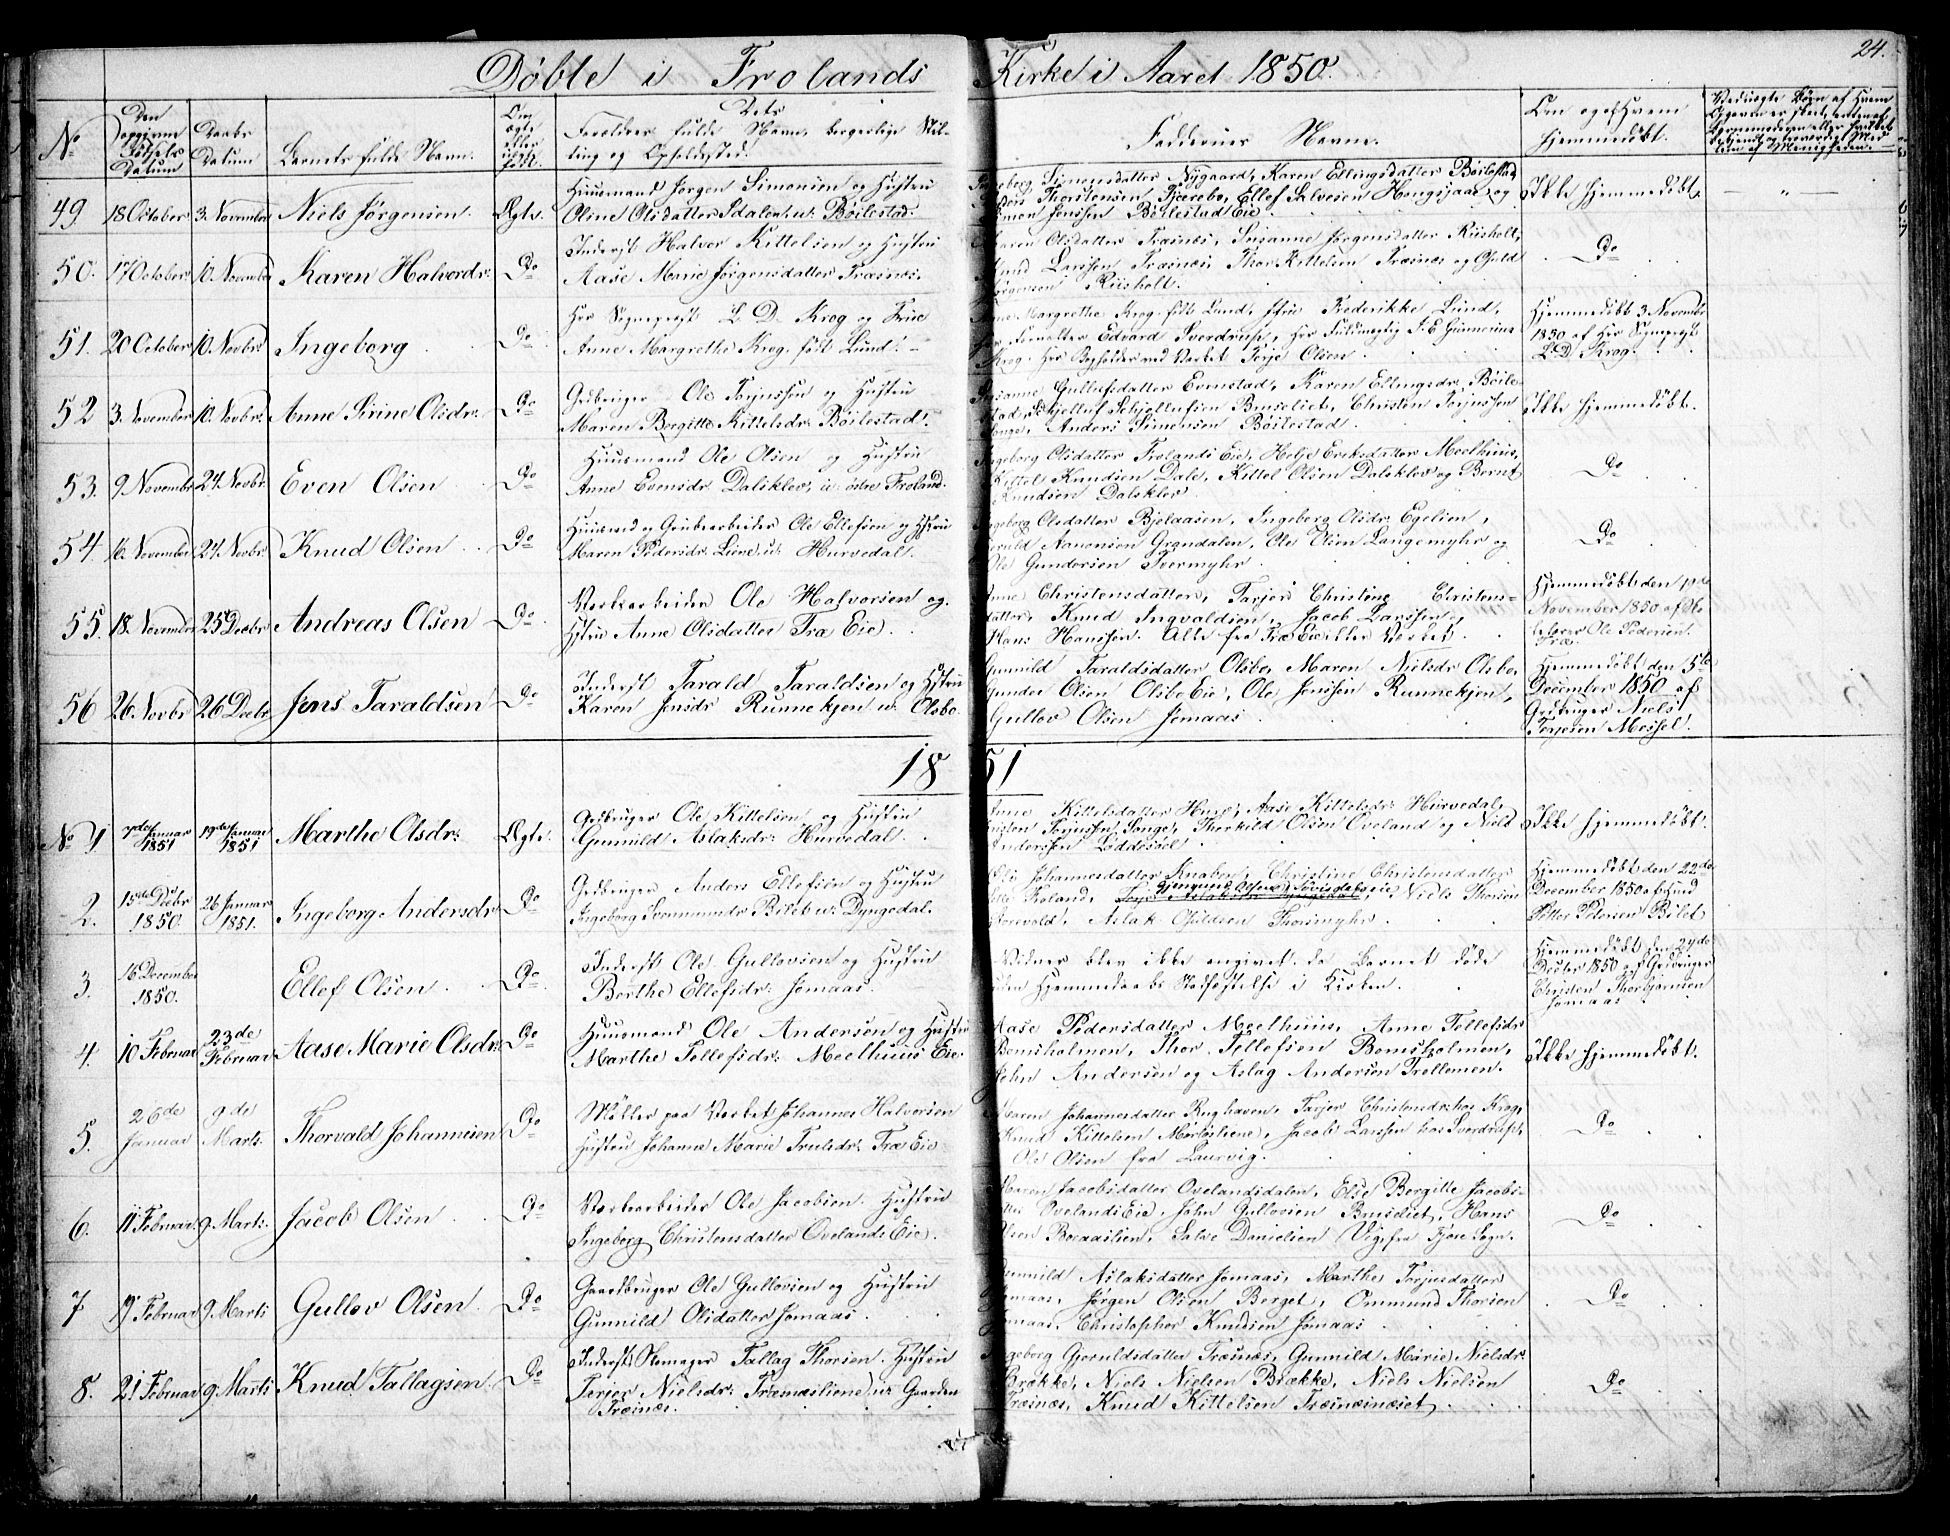 24.
Døbte i Frolands Kirke i Aaret 1850.
No
Den opgivne Fødsels Datum
Daabs Datum
Barnets fulde Navn.
Om ægte eller uægte født.
Dets Forældres fulde Navn, borgerlige Stilling og Opholdssted.
Faddernes Navne.
Om og af Hvem hjemmedøbt.
49 18 October 3. November Niels Jørgensen. Ægte.
Huusmand Jørgen Simonsen og Hustru
Oline Olsdatter Idalen u. Bøilestad.
Simonsdatter Nygaard, Karen Ellingsdatter Bøilestad
Thorstensen Fjærebo, Ellef Salvesen Hengsjaas og
Simon Jensen Bøilestad Eie
Ikke hjemmedøbt. — " —
50. 17 October 10. November Karen Halvorsdr. Do
Inderst Halvor Kittelsen og Hustru
Aase Marie Jørgensdatter Træsnæs.
Maren Olsdatter Træsnæs, Susanne Jørgensdatter Riisholt,
Knud Larssen Træsnæs, Thor Kittelsen Træsnæs og
Jørgensen Riisholt.
Do
51. 20 October 10. Novbr. Ingeborg Do
Hr Sognepræst L. D. Krog og Frue
Anne Margrethe Krog født Lund.
Anne Margrethe Krog født Lund, Frederikke Lund,
Forvalter Edvard Sverdrup, Hr Fuldmægtig J. E. Gunnerius
Krog. Hr Bogholder ved Værket Terje Olsen
Hjemmedøbt 3 Novembr
1850 af Hr Sognepræst
L. D. Krog.
52 3. November 10. Novbr. Anne Sirine Olsdr. Do
Gbruger Ole Torjussen og Hustru
Maren Bergitte Kittelsdr. Bøilestad.
Susanne Gullufsdatter Evenstad, Karen Ellingsdr. Bøile-
stad, Schjelluf Schjellufsen Buseliet, Christen Torjussen
Songe, Anders Simonsen Bøilestad.
Ikke hjemmedøbt.
53. 9 Novembr 24. Novbr. Even Olsen Do
Huusmand Ole Olsen og Hustru
Anne Evensdr Dalsklev, u. østre Froland.
Ingeborg Olsdatter Frolands Eie, Helje Eriksdatter Moelhuus,
Kittel Knudsen Dale, Kittel Olsen Dalsklev og Bernt
Knudsen Dalsklev.
Do
54. 16. November 24. Novbr. Knud Olsen Do
Huusmd og Grubearbeider Ole Ellefsen og Hstru
Maren Pedersdr. Liene u. Hurvedal.
Ingeborg Olsdatter Bjelaasen, Ingeborg Olsdr. Egelien,
Aanonsen Grøndalen, Ole Olsen Langemyhr og
Ole Gundersen Svermyhr.
Do
55. 18. November 25 Decbr Andreas Olsen Do
Værksarbeider Ole Halvorsen og
Hstru Anne Olsdatter Træ Eie.
Anne Christensdatter, Tarjer Christine Christens-
datter, Knud Ingvaldsen, Jacob Larssen og
Hans Hanssen. Alle fra Træ Eie eller Værket.
Hjemmedøbt den
November 1850 af
Ole Pedersen
Træ.
56 26 Novbr 26 Decbr Jens Taraldsen Do
Inderst Tarald Taraldsen og Hstru
Karen Jensdr Runnekjen u. Olsbo.
Gunnild Taraldsdatter Olsbo, Maren Nielsdr Olsbo,
Gunder Olsen Olsbo Eie, Ole Jenssen Runnekjen,
Gullov Olsen Jomaas
Hjemmedøbt den 5te
December 1850 af
Grdbruger Niels
Terjesen Messel.
1851
No 1 7de Januar 1851 19de Januar 1851 Marthe Olsdr. Ægte.
Grdbruger Ole Kittelsen og Hustru
Gunnild Aslaksdr. Hurvedal.
Anne Kittelsdatter Hurv, Aase Kittelsdr. Hurvedal,
Christen Torjussen Songe, Therkild Olsen Oveland og Niels
Anderssen Løddesøel.
Ikke hjemmedøbt.
2. 15de Decbr 1850. 26 Januar 1851. Ingeborg Andersdr. Do
Grdbruger Anders Ellefsen og Hustru
Ingeborg Svenumsdr Bilet u. Dyngedal.
Johannesdatter Knaben, Christine Christensdatter
Froland, Niels Thorsen
Aslak Thorsmyhr
Hjemmedøbt den 22de
December 1850 af
Petter Petersen Bilet
3. 16 December 1850. Ellef Olsen Do
Inderst Ole Gullovsen og Hustru
Berthe Ellefsdr. Jomaas.
Vidner blev ikke angivet da Barnet døde
uden Hjemmedaabs Stadfæstelse i Kirken.
Hjemmedøbt den 27de
Decbr 1850 af Grdbruger
Christen Thorbjørnsen
Jomaas
4. 10 Februar 23de Februar Aase Marie Olsdr. Do
Huusmand Ole Andersen og Hustru
Marthe Tellefsdr. Moelhuus Eie.
Aase Pedersdatter Moelhuus, Anne Tellefsdr
Bomsholmen, Thor Tellefsen Bomsholmen,
John Andersen og Aslag Andersen Trollemen.
Ikke hjemmedøbt.
5. 26de Januar 9de Marts Thorvald Johannesen Do
Møller paa Værket Johannes Halvorsen
Hustru Johanne Marie Trulsdr. Træ Eie
Maren Johannesdatter Rughaven, Tarjer Christensdr. hos Krog,
Knud Kittelsen Mørløsliene, Jacob Larssen hos Sverdrup,
Ole Olsen fra Laurvig.
Do
6. 11 Februar 9. Marts. Jacob Olsen Do
Værksarbeider Ole Jacobsen. Hustru
Ingeborg Christensdatter Ovelands Eie.
Maren Jacobsdatter Ovelandsdalen, Else Bergitte Jacobs-
datter Ovelands Eie, John Gullovsen Buseliet, Hans
Olsen Boraaslien, Salve Danielsen Vig, fra Fjære Sogn.
Do
7 19 Februar 9 Marts Gullov Olsen Do
Gaardbruger Ole Gullovsen og Hustru
Gunnild Olsdatter Jomaas.
Gunnild Aslaksdatter Jomaas, Marthe Terjesdatter
Jomaas, Jørgen Olsen Berget, Ommund Thorsen
Jomaas, Christopher Knudsen Jomaas
Do
8. 21 Februar 9. Marts Knud Tallagsen. Do
Inderst Skomager Tallag Thorsen. Hustru
Terjer Nielsdr. Træmæsliene u. Gaarden
Træsnæs.
Ingeborg Gjeruldsdatter Træsnæs, Gunnild Marie Nielsdr.
Brække, Niels Nielsen Brække, Niels Nielsen
Træsnæs, Knud Kittelsen Træsnæsnæset.
Do